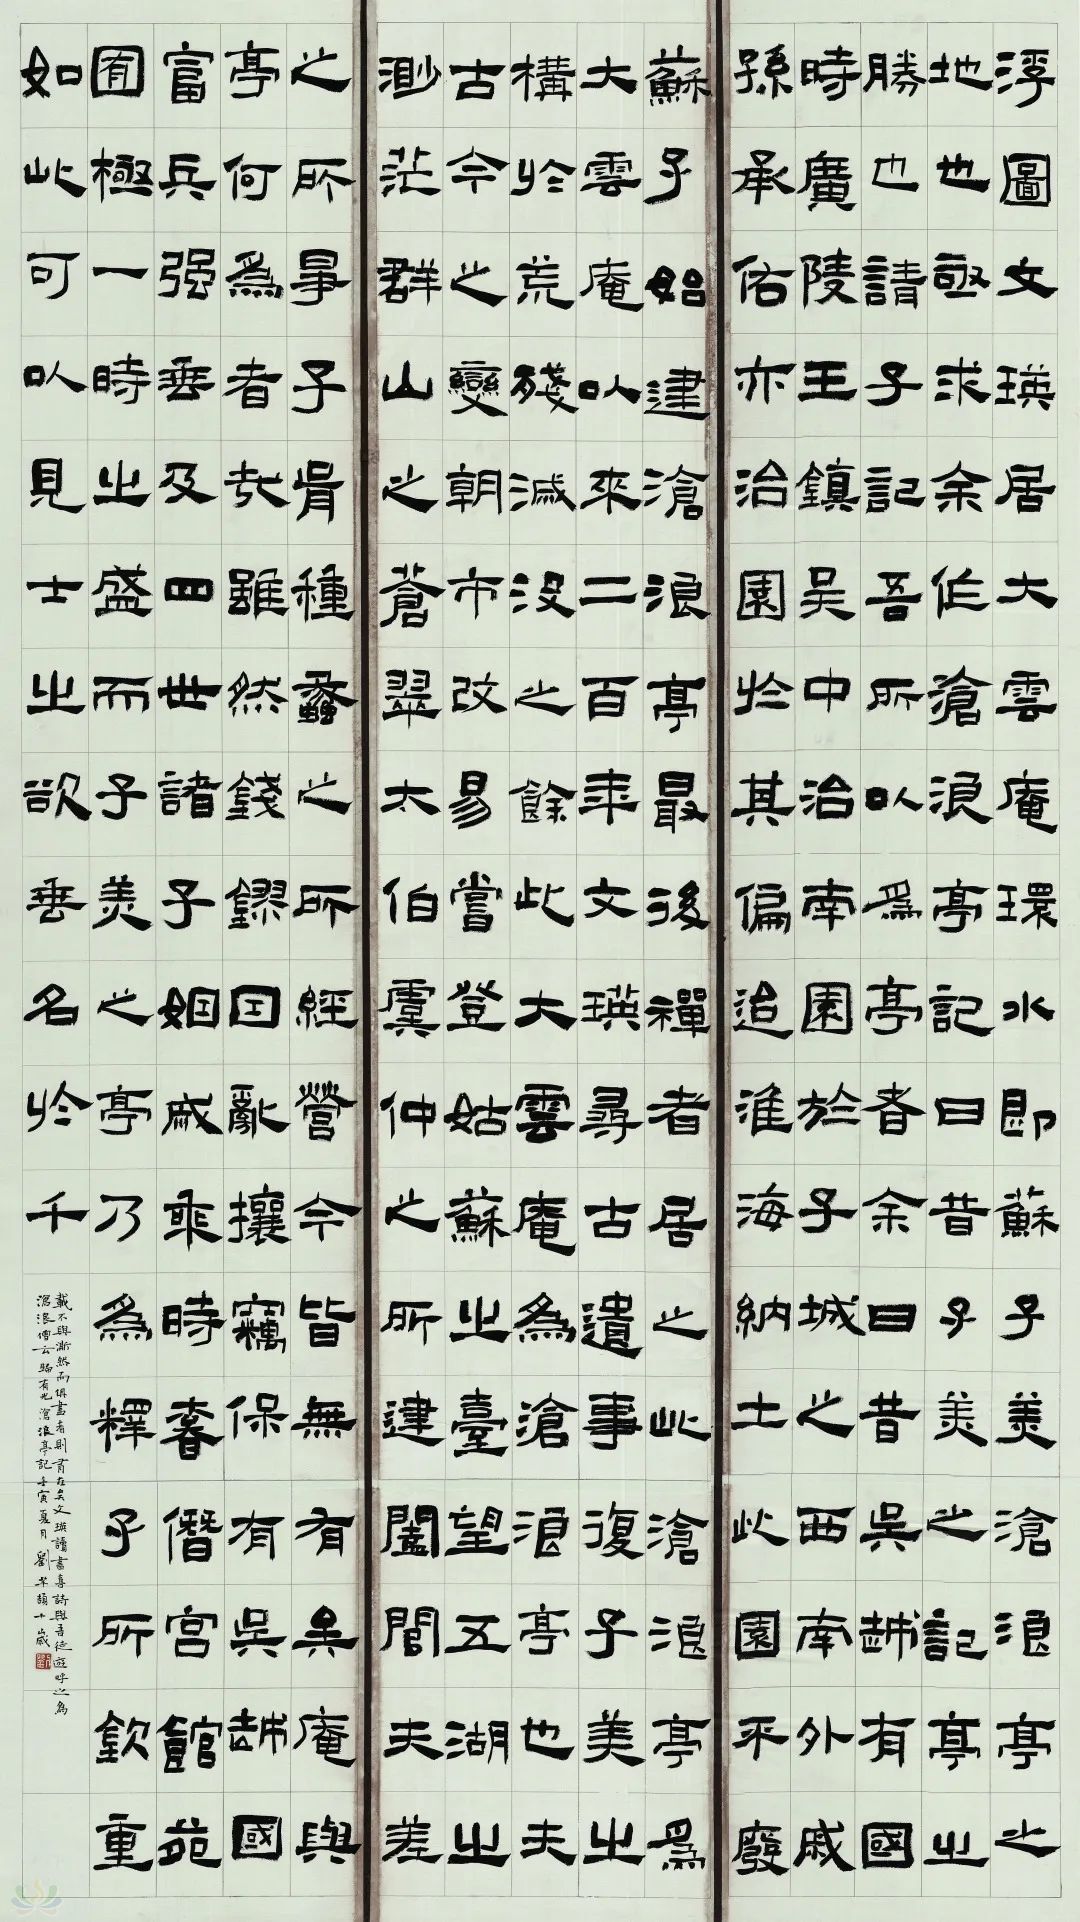 浮圖文瑛居大雲庵環水即蘇子美滄浪亭之
地也亟求余作滄浪亭記曰昔子美之記亭之
勝也請子記吾所以為亭者余曰昔吳越有國
時廣陵王鎮吳中治南園於子城之西南外戚
孫承佑亦治園於其偏迨淮海納土此園不廢
蘇子始建滄浪亭最後禪者居之此滄浪亭為
大雲庵以來二百年文瑛尋古遺事復子美之
構於荒殘滅沒之餘此大雲庵為滄浪亭也夫
古今之變朝市改易嘗登姑蘇之臺望五湖之
渺茫群山之蒼翠太伯虞仲之所建闔閭夫差
之所爭子胥種蠡之所經營今皆無有矣庵與
亭何為者哉雖然錢鏐因亂攘竊保有吳越國
富兵强垂及四世諸子姻戚乘時奢僭宮館苑
囿極一時之盛而子美之亭乃為釋子所欽重
如此可以見士之欲垂名於千
載不與澌然而俱盡者則有在矣文瑛讀書喜詩與吾徒遊呼之為
滄浪僧云歸有光滄浪亭記壬寅夏月劉十歲